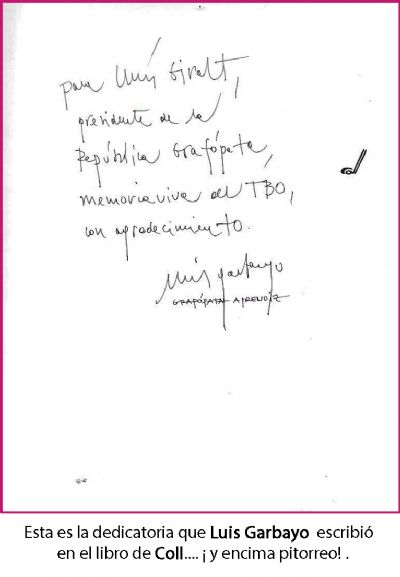 para Lluís Giralt,
presidente de la
República Grafópata,
memoria viva del TBO,
con agradecimiento.
Luis Garbayo
GRAFÓPATA
Esta es la dedicatoria que Luis Garbayo escribió
en el libro de Coll.... ¡ y encima pitorreo! .